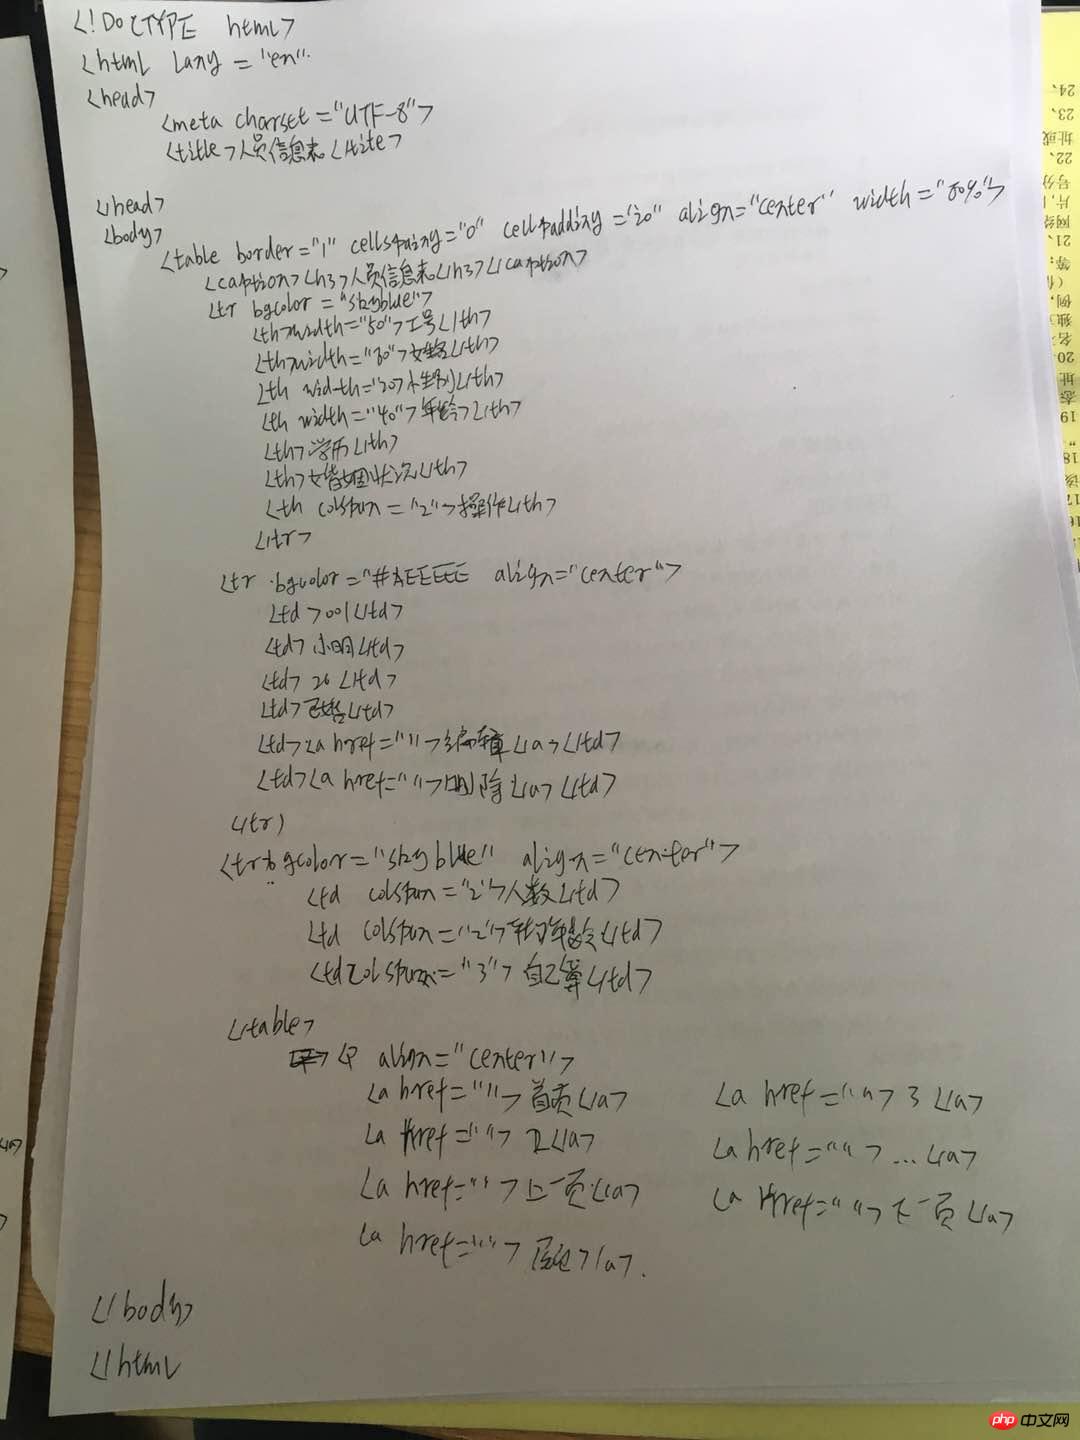 <!DOCTYPE html>
<html lang = "en".
<head>
<meta charset ="UTF-8">
<title>人员信息表</tite>
</head>
<body>
<table border="1" cellspaing="0" cellpadding="20" align="center" width="80%">
<caption><h3>人员信息表</h3></caption>
<tr bgcolor = "skyblue">
<th>width="50">工号</th>
<th>width="80">姓名</th>
<th width="20>性别</th>
<th width="40">年龄></th>
<th>学历</th>
<th>婚姻状况</th>
<th colspan = "2">操作</th>
</tr>
<tr bgcolor="#AEEEEE align="center">
<td>001</td>
<td>小明</td>
<td>26</td>
<td>已婚</td>
<td><a href="">编辑</a></td>
<td><a href="">删除</a></td>
</tr>
<tr bgcolor="skyblue" align="center">
<td colspan="2">人数</td>
<td colspan="2">平均年龄</td>
<td colspan="3">自己算</td>
</table>
<p align="center">
<a href="">首页</a> <a href="">3</a>
<a href=""> </a> <a href="">...</a>
<a href="">上一页</a> <a href="">下一页</a>
<a href=""> >/a>.
</body>
</html
24、
23、
址或
22、
号分
片,
网络
21、
等;
例,
名
20、
址
态
19
18
该
17
php 中文网